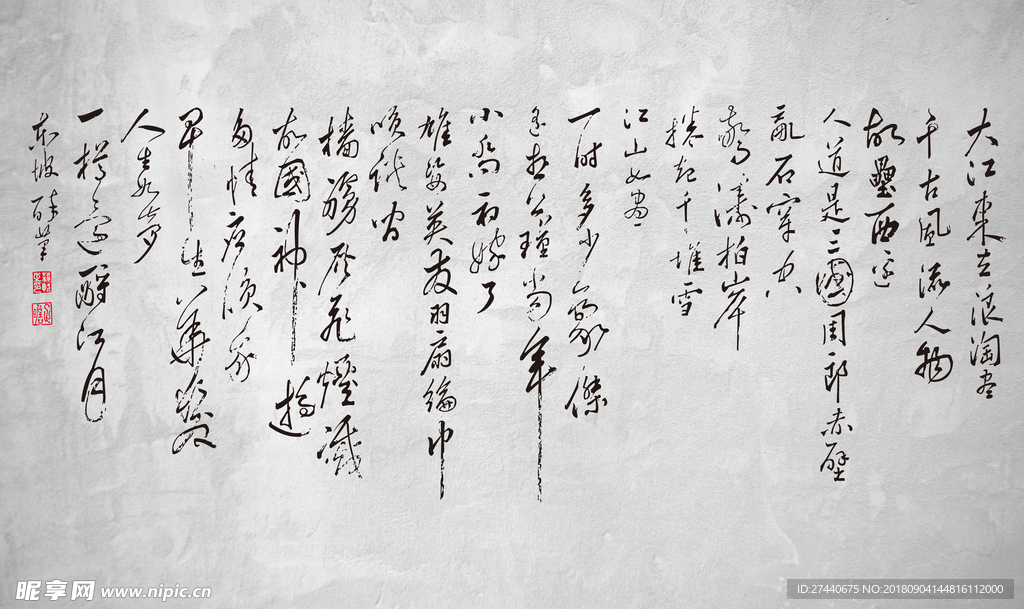 大江東去浪淘盡
千古風流人物
故壘西邊
人道是三國周郎赤壁
亂石穿空
驚濤拍岸
捲起千堆雪
江山如畫
一時多少豪傑
遙想公瑾當年
小喬初嫁了
雄姿英发羽扇綸巾
笑談間
檣櫓灰飛煙滅
故國神遊
多情應笑我
早生華髮
人生如夢
一樽還酹江月
東坡醉筆
昵享网 www.nipic.cn
ID:27440675 NO:20180904144816112000